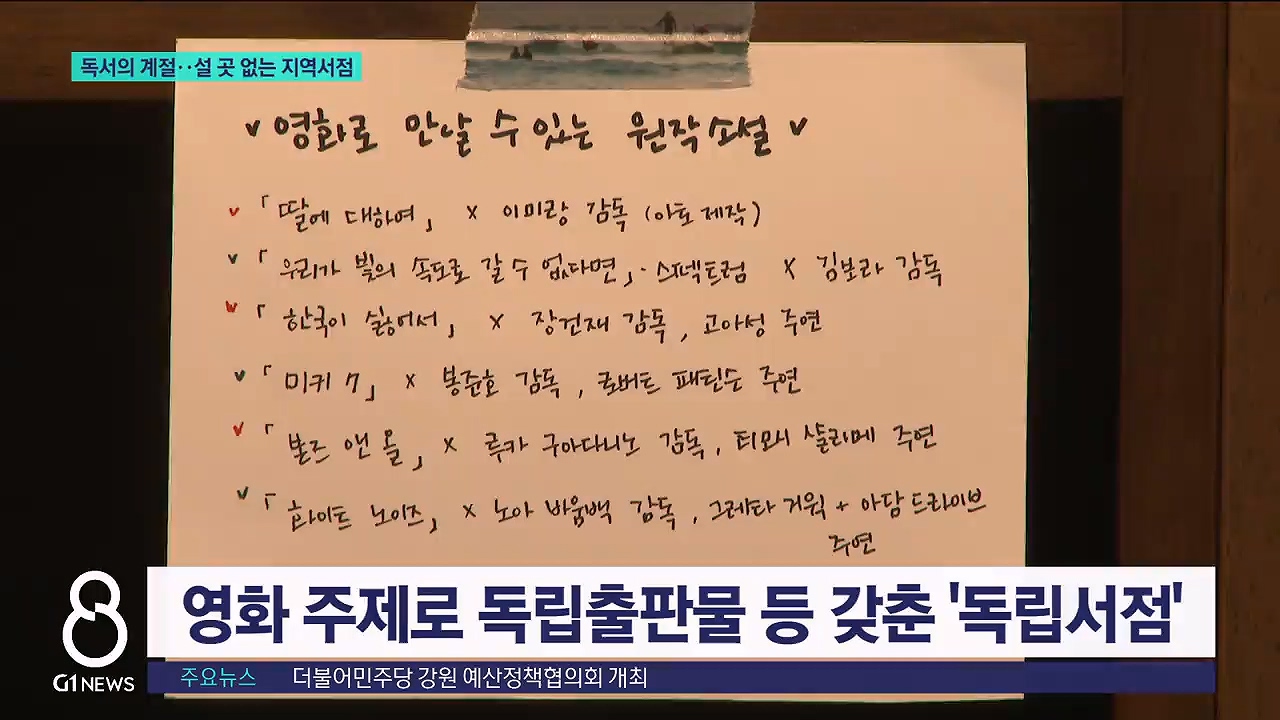 독서의 계절‥설 곳 없는 지역서점
v 영화로 만날 수 있는 원작소설 v
v 「딸에 대하여」 x 이미랑 감독 (아토 제작)
v 「우리가 빛의 속도로 갈 수 없다면」· 스펙트럼 x 김보라 감독
v 「한국이 싫어서」 x 장건재 감독, 고아성 주연
v 「미키 7」 x 봉준호 감독, 로버트 패틴슨 주연
v 「본즈 앤 올」 x 루카 구아다니노 감독, 티모시 샬라메 주연
v 「화이트 노이즈」 x 노아 바움백 감독, 그레타 거윅 + 아담 드라이브
주연
영화 주제로 독립출판물 등 갖춘 '독립서점'
8
G1 NEWS
주요뉴스 더불어민주당 강원 예산정책협의회 개최